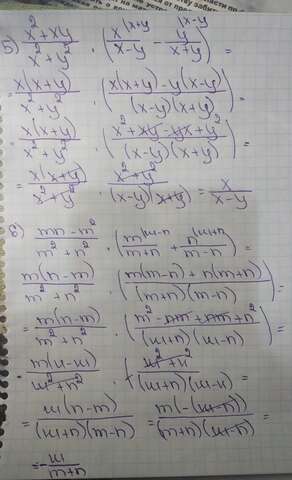 5) (x² + xy)/(x² + y²) · (x^(x+y)/(x-y) - y^(x-y)/(x+y)) =
= x(x+y)/(x² + y²) · (x(x+y) - y(x-y))/((x-y)(x+y)) =
= x(x+y)/(x² + y²) · (x² + xy - yx + y²)/((x-y)(x+y)) =
= x(x+y)/(x² + y²) · (x² + y²)/((x-y)(x+y)) = x/(x-y)
6) (mn - m²)/(m² + n²) · (m^(m-n)/(m+n) + n^(m+n)/(m-n)) =
m(n-m)/(m² + n²) · (m(m-n) + n(m+n))/((m+n)(m-n)) =
= m(n-m)/(m² + n²) · (m² - nm + nm + n²)/((m+n)(m-n)) =
= m(n-m)/(m² + n²) · (m² + n²)/((m+n)(m-n)) =
= m(n-m)/((m+n)(m-n)) = m(-(m-n))/((m+n)(m-n)) =
= - m/(m+n)